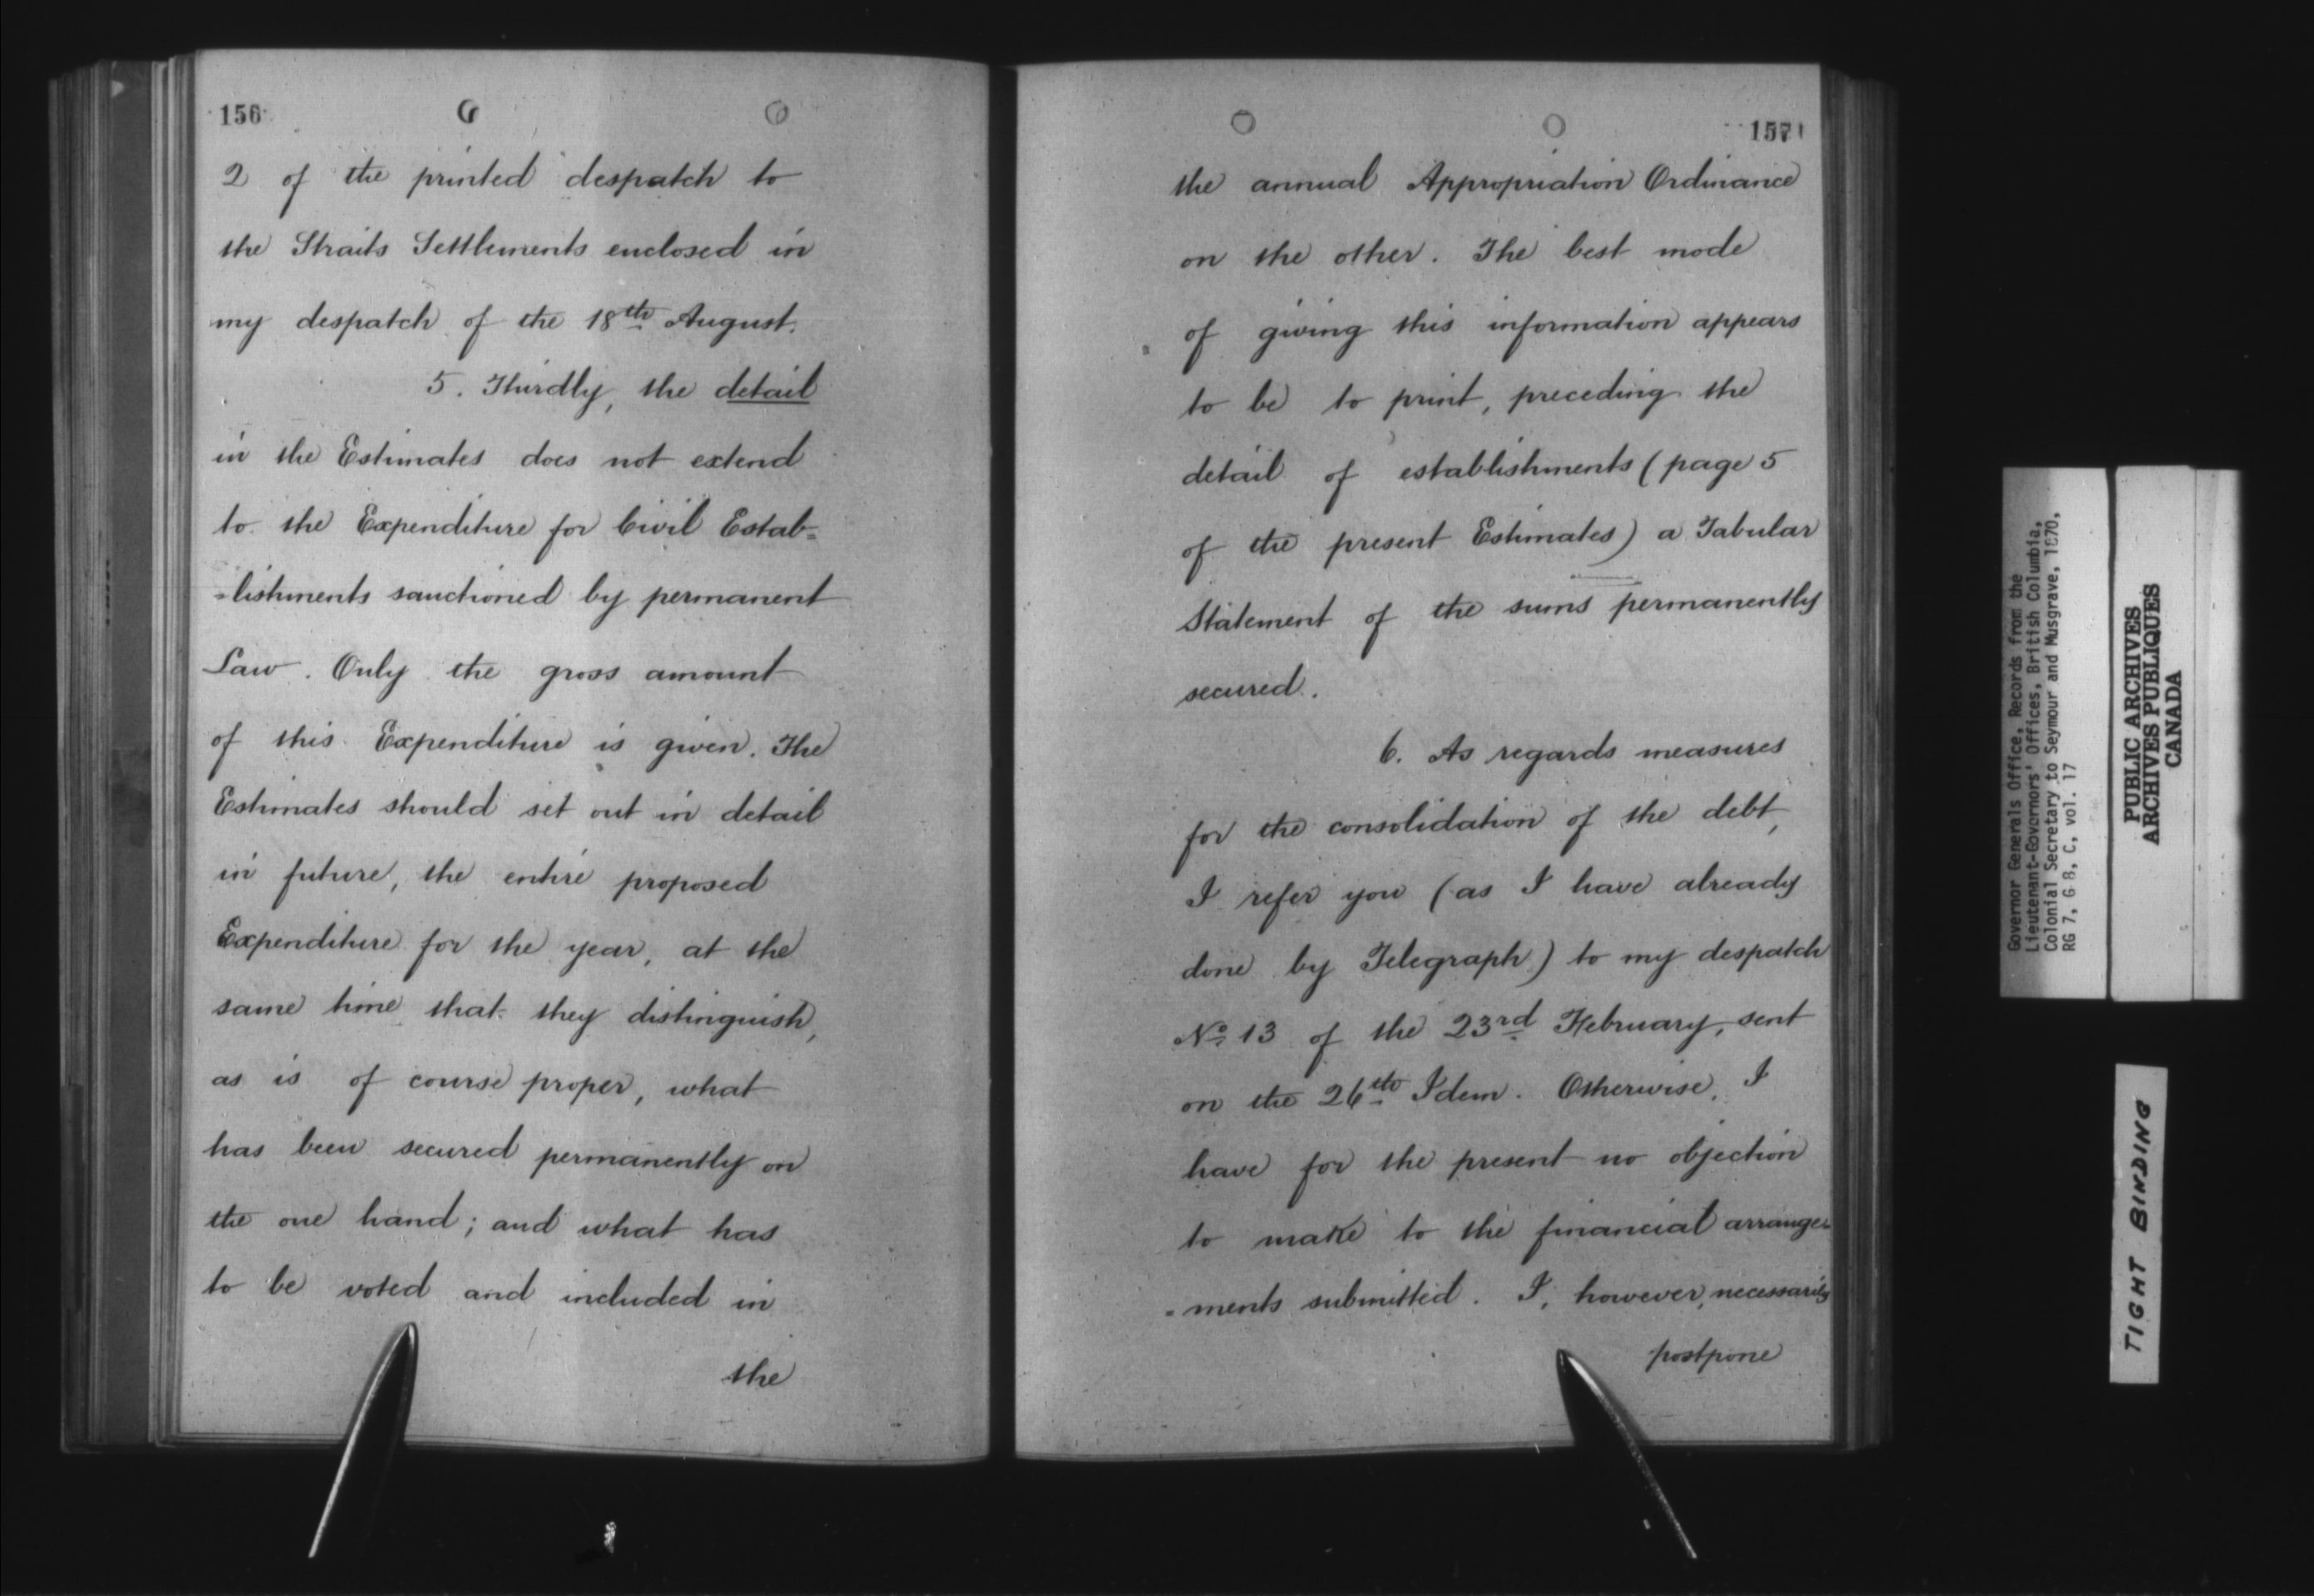 156
2 of the printed despatch to
the Straits Settlements enclosed in
my despatch of the 18th August.
5. Thirdly, the detail
in the Estimates does not extend
to the Expenditure for Civil Estab=
=lishments sanctioned by permanent
Law. Only the gross amount
of this Expenditure is given. The
Estimates should set out in detail
in future, the entire proposed
Expenditure for the year, at the
same time that they distinguish,
as is of course proper, what
has been secured permanently on
the one hand; and what has
to be voted and included in
the
157
the annual Appropriation Ordinance
on the other. The best mode
of giving this information appears
to be to print, preceding the
detail of establishments (page 5
of the present Estimates) a Tabular
Statement of the sums permanently
secured.
6. As regards measures
for the consolidation of the debt,
I refer you (as I have already
done by Telegraph) to my despatch
No. 13 of the 23rd February, sent
on the 26th Idem. Otherwise, I
have for the present no objection
to make to the financial arrange=
=ments submitted. I, however, necessarily
postpone
Governor Generals Office, Records from the
Lieutenant-Governors' Offices, British Columbia,
Colonial Secretary to Seymour and Musgrave, 1870,
RG 7, G 8, C, vol. 17
PUBLIC ARCHIVES
ARCHIVES PUBLIQUES
CANADA
TIGHT BINDING